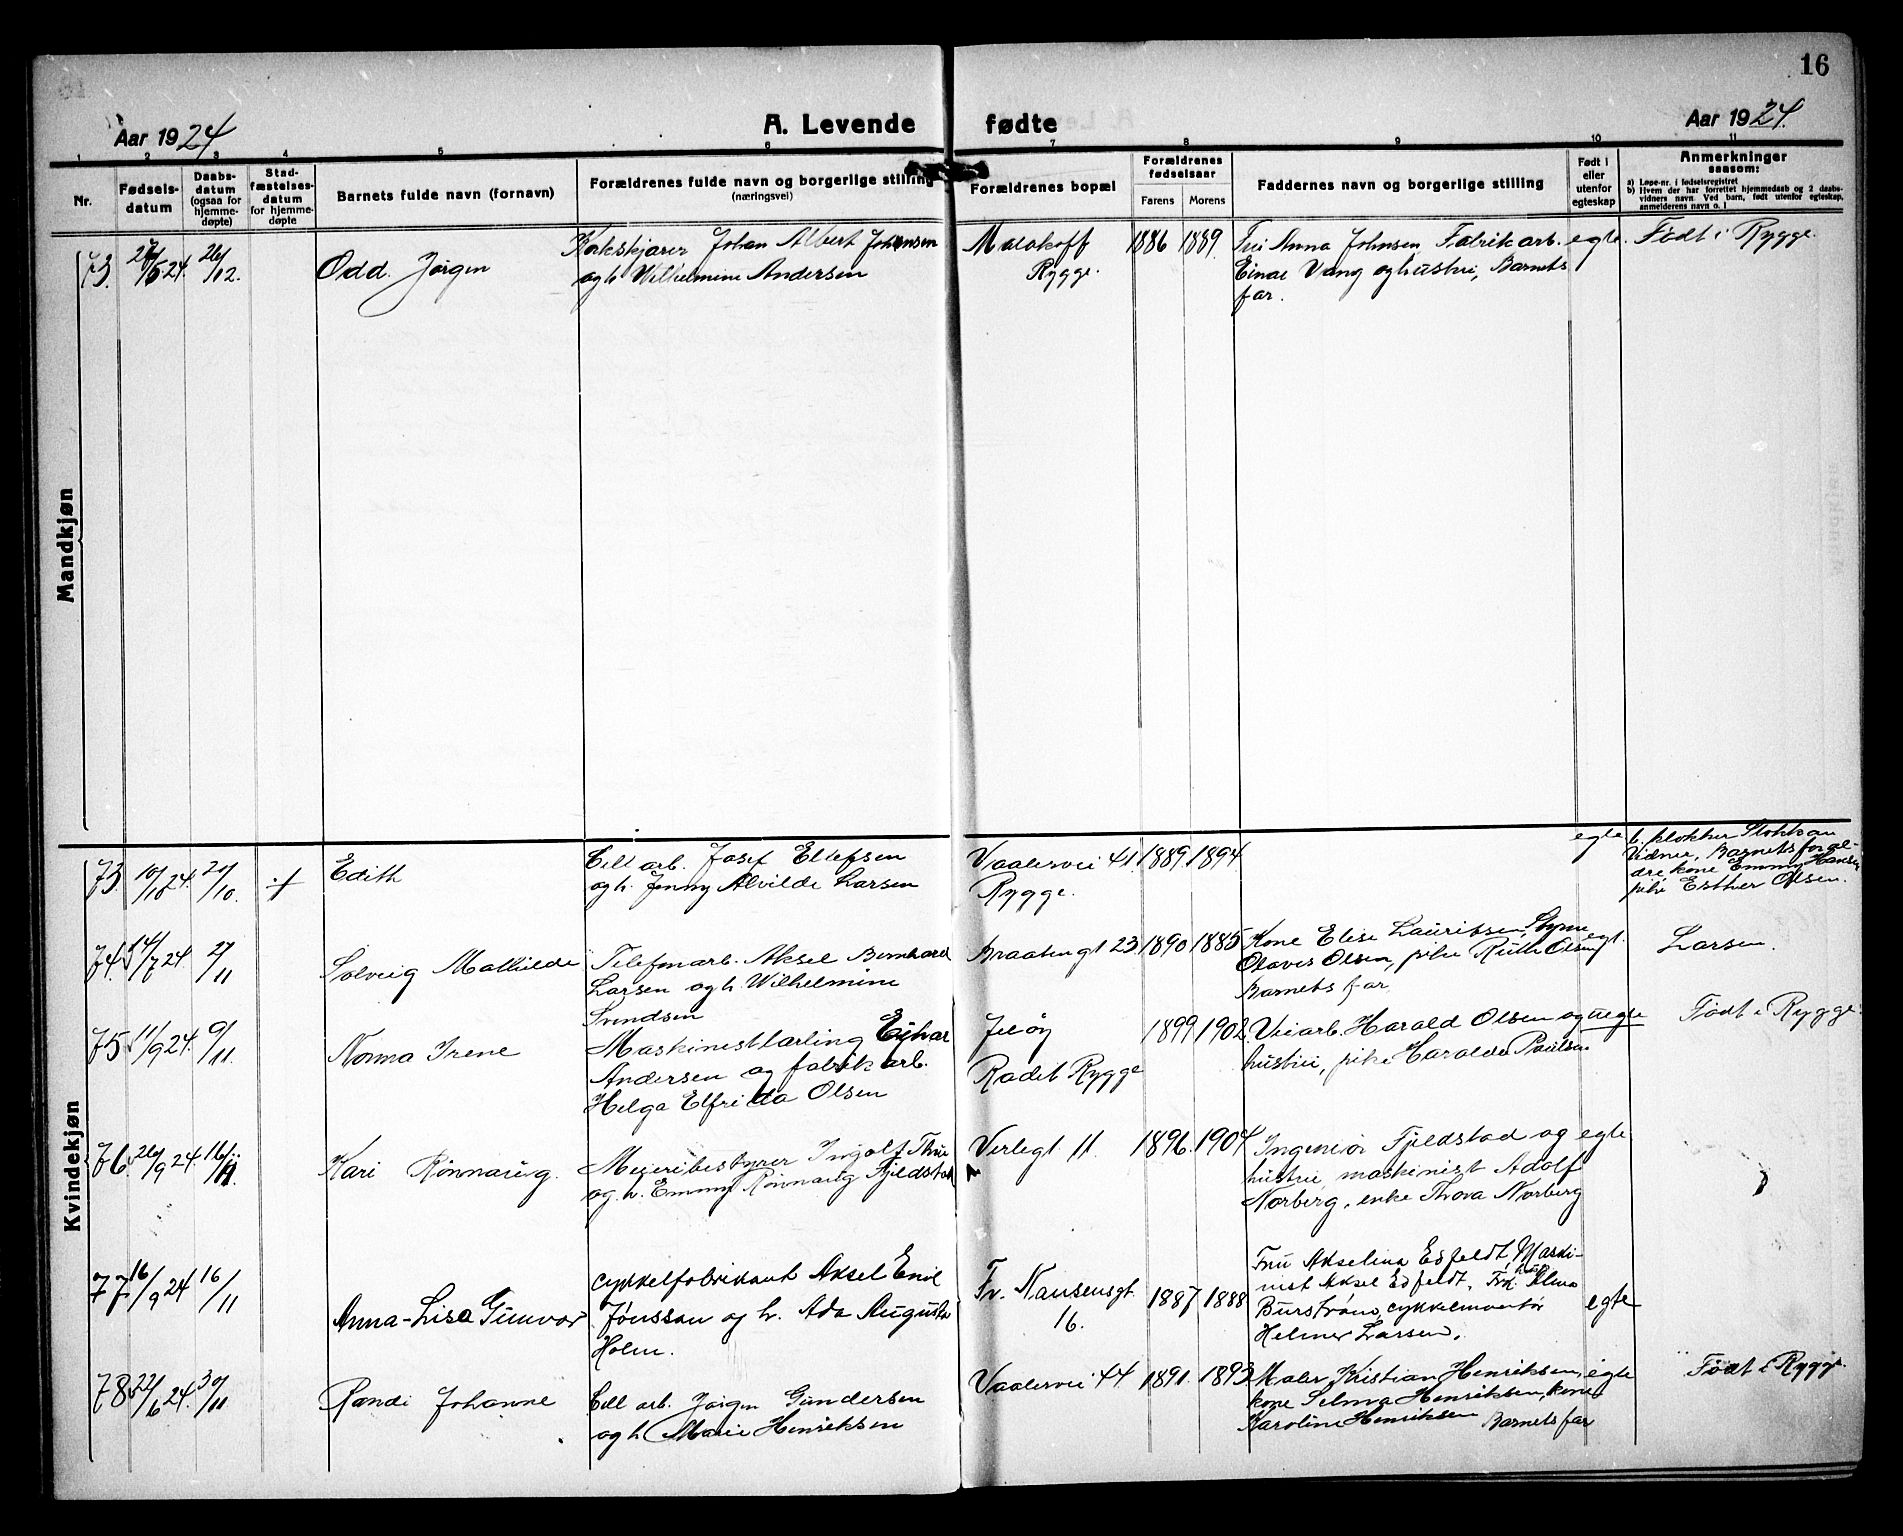 16
Aar 1924
A. Levende fødte
Aar 1924.
1 2 3 4 5 6 7 8 9 10 11
Nr.
Fødsels-
datum
Daabs-
datum
(ogsaa for
hjemme-
døpte)
Stad-
fæstelses-
datum
for hjemme-
døpte
Barnets fulde navn (fornavn)
Forældrenes fulde navn og borgerlige stilling
(næringsvei)
Forældrenes bopæl
Forældrenes
fødselsaar
Farens Morens
Faddernes navn og borgerlige stilling
Født i
eller
utenfor
egteskap
Anmerkninger
saasom:
a) Løpe-nr. i fødselsregistret
b) Hvem der har forrettet hjemmedaab og 2 daabs-
vidners navn. Ved barn, født utenfor egteskap,
anmelderens navn o. l
Mandkjøn
73. 24 26/12.
Odd. Jørgen
Korkskjærer Johan Albert Johansen
og h. Wilhelmine Andersen
Malakoff
Rygge.
1886 1889.
Fru Anna Johnsen Fabrikarb.
Einar Vang og hustru, Barnets
far.
egte.
Født i Rygge.
Kvindekjøn
73. 10/10 24. 20/10. ·/·
Edith
Cell arb. Josef Ellefsen
og h. Jenny Alvilde Larsen
Vaalervei 41.
Rygge.
1889. 1894.
egte
b. klokker Stokkan
Vidner, Barnets foræl-
dre kone Emmy Hansen
pike Esther Olsen.
74. 14/7 24. 2/11
Solveig Mathilde
Telefonarb. Aksel Bernhard
Larsen og h. Wilhelmine
Svendsen
Braatengt 23
1890 1885
Kone Elise Lauritsen,
Olaves Olsen, pike Ruth Olsen
Barnets far
egt.
Larsen.
75. 11/9 24. 9/11.
Norma Irene
Maskinistlærling Ejvar
Andersen og fabrik arb.
Helga Elfrida Olsen
Jeløy
Radet Rygge
1899 1902.
Veiarb. Harald Olsen og
hustru, pike Haralda Paulsen
uegte
Født i Rygge.
76. 26/9 24. 16/11
Kari Rønnaug.
Meieribestyrer Ingolf Thue
og h. Emmy Rønnaug Fjeldstad
Verlegt 11.
1896. 1904
Ingeniør Fjeldstad og
hustru, maskinist Adolf
Norberg, enke Thora Norberg
egte
77. 16/9 24 16/11
Anna-Lisa Gunvor
Cykkelfabrikant Aksel Emil
Jönsson og h. Ada Augusta
Holm.
Fr. Nansensgt.
16.
1887 1888
Fru Akselina Edfeldt, Maski-
nist Aksel Edfeldt, Frk. Alma
Burström, cykkelmontør
Helmer Larsen.
egte
78. 22/6 24. 30/11
Randi Johanne
Cell arb. Jørgen Gundersen
og h. Marie Henriksen
Vaalervei 44
1891. 1893
Maler Kristian Henriksen,
kone Selma Henriksen, kone
Karoline Henriksen Barnets far
egte
Født i Rygge.